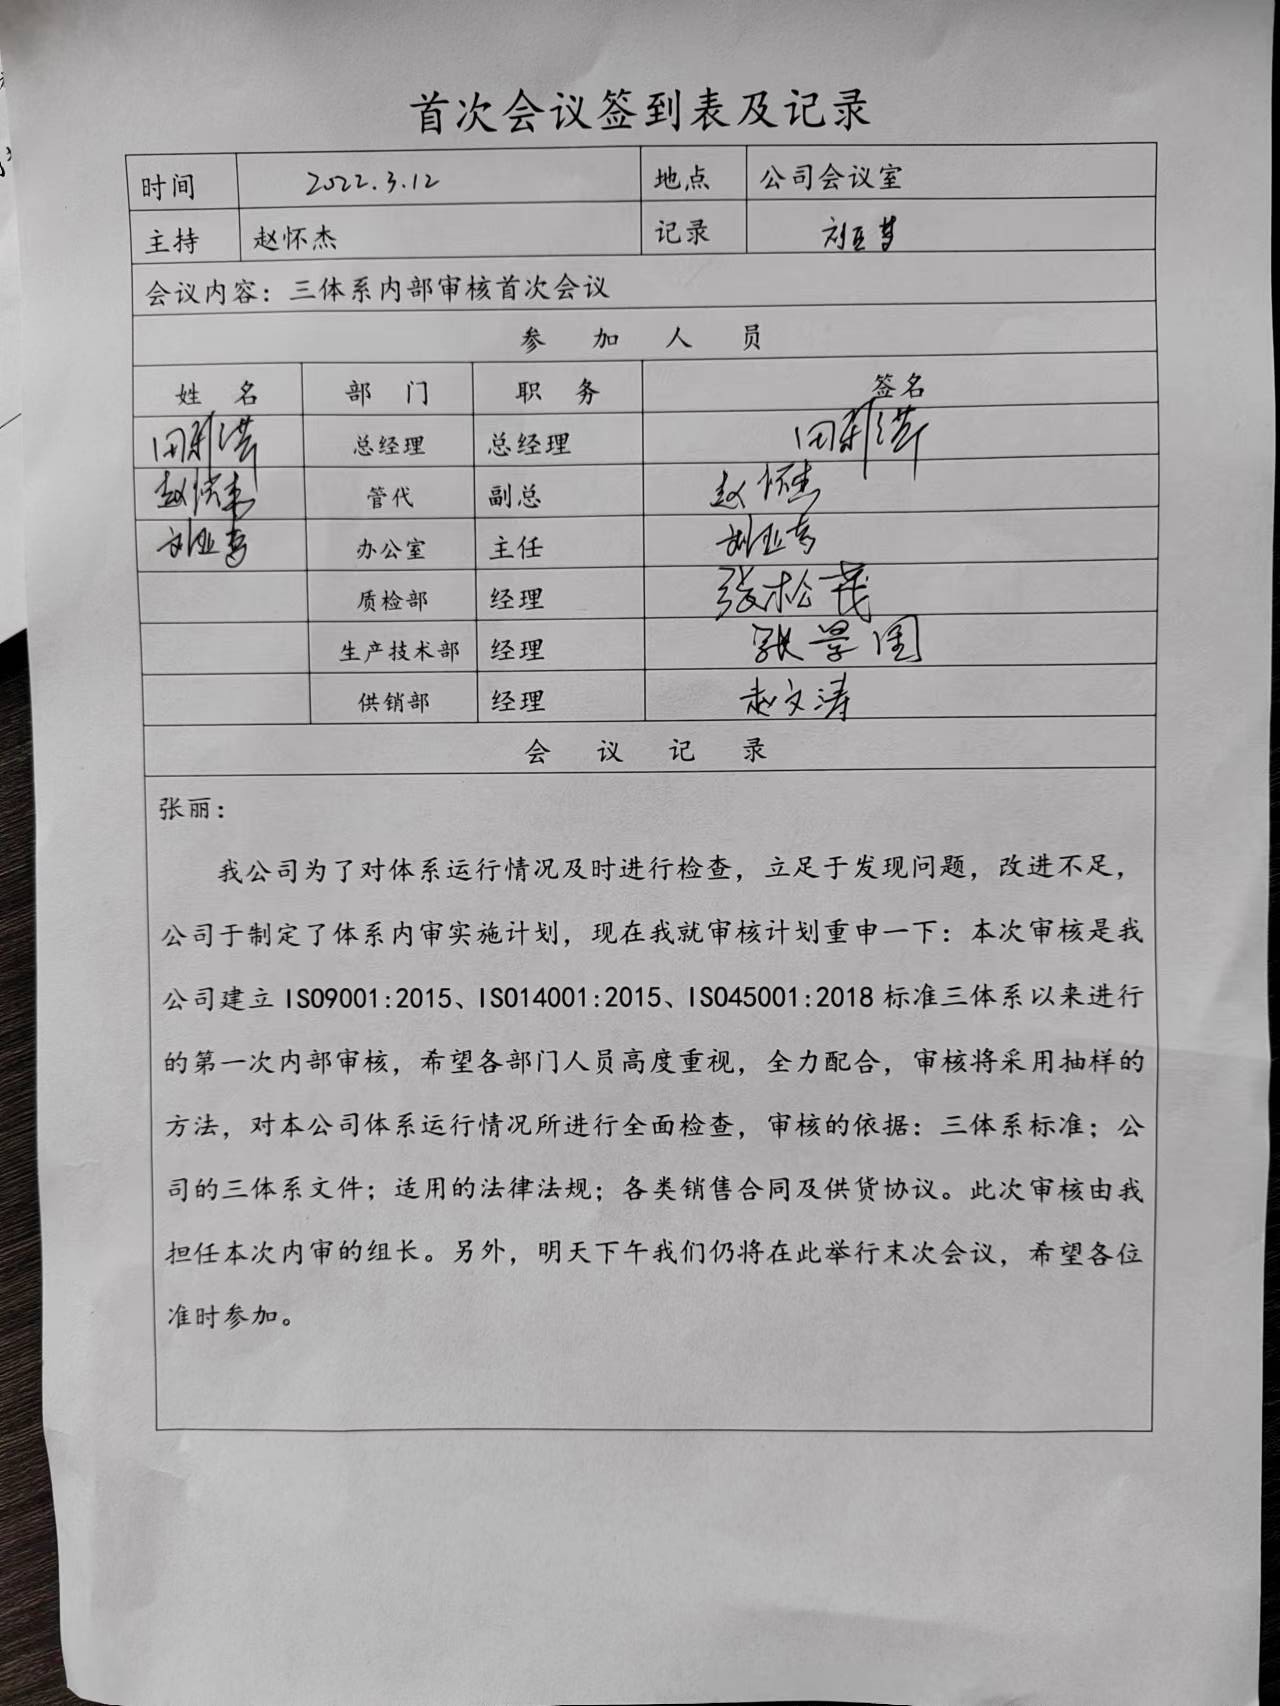 首次会议签到表及记录
时间 2022.3.12 地点 公司会议室
主持 赵怀杰 记录 刘亚
会议内容：三体系内部审核首次会议
参 加 人 员
姓 名 部 门 职 务 签名
田 总经理 总经理 田
赵怀杰 管代 副总 赵怀杰
刘亚 办公室 主任 刘亚
质检部 经理 张松茂
生产技术部 经理 张景国
供销部 经理 赵文涛
会 议 记 录
张丽：
我公司为了对体系运行情况及时进行检查，立足于发现问题，改进不足，
公司于制定了体系内审实施计划，现在我就审核计划重申一下：本次审核是我
公司建立ISO9001:2015、ISO14001:2015、ISO45001:2018标准三体系以来进行
的第一次内部审核，希望各部门人员高度重视，全力配合，审核将采用抽样的
方法，对本公司体系运行情况所进行全面检查，审核的依据：三体系标准；公
司的三体系文件；适用的法律法规；各类销售合同及供货协议。此次审核由我
担任本次内审的组长。另外，明天下午我们仍将在此举行末次会议，希望各位
准时参加。